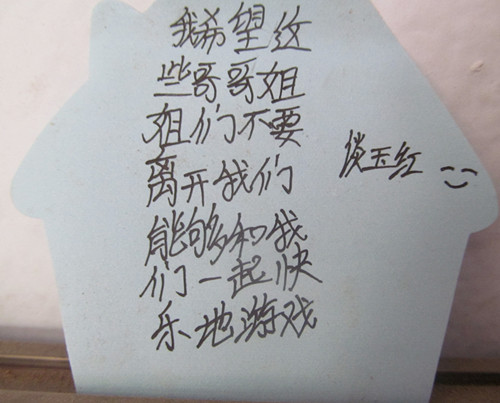 我希望这
些哥哥姐
姐们不要
离开我们
能够和我
们一起快
乐地游戏
玉红